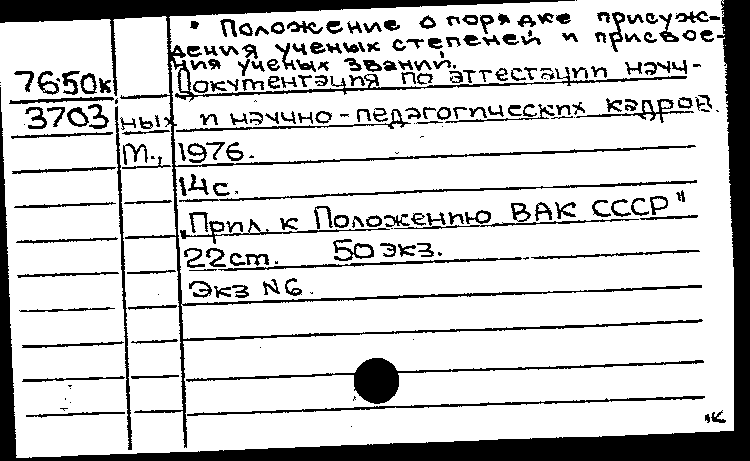 * Положение о порядке присуж-
дения ученых степеней и присвое-
ния ученых званий.
7650к Документация по аттестации науч-
3703 ных и научно-педагогических кадров.
М., 1976.
14с.
"Прил. к Положению ВАК СССР"
22ст. 50экз.
Экз №6.
"К